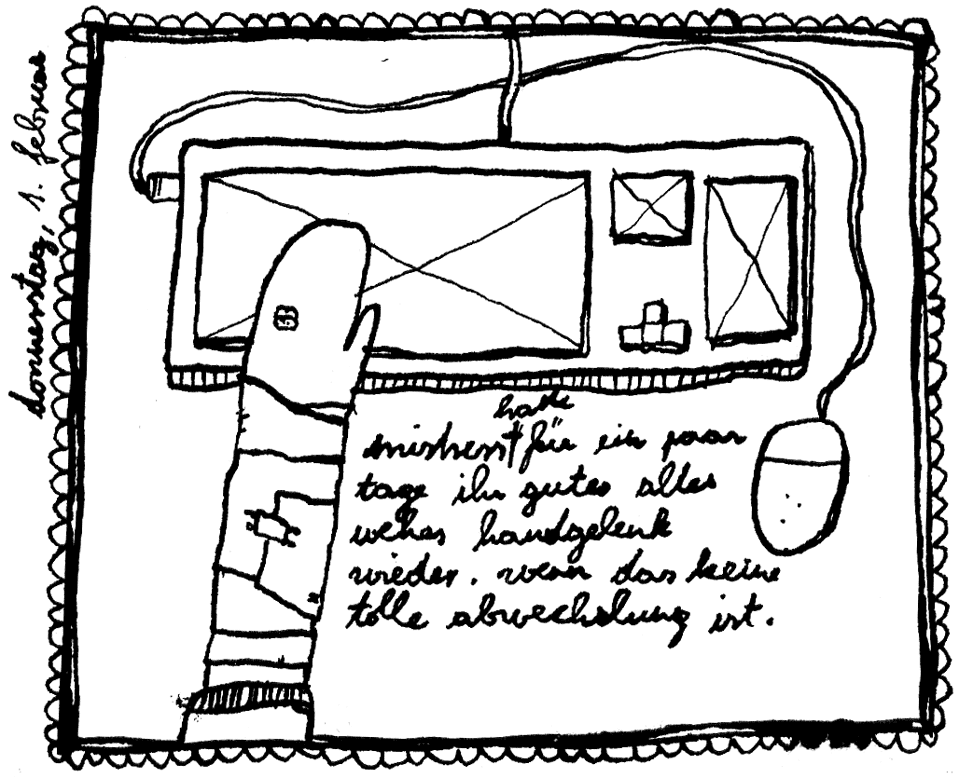 donnerstag, 1. februar
hatte
mistress für ein paar
tage ihr gutes altes
wehes handgelenk
wieder. wenn das keine
tolle abwechslung ist.